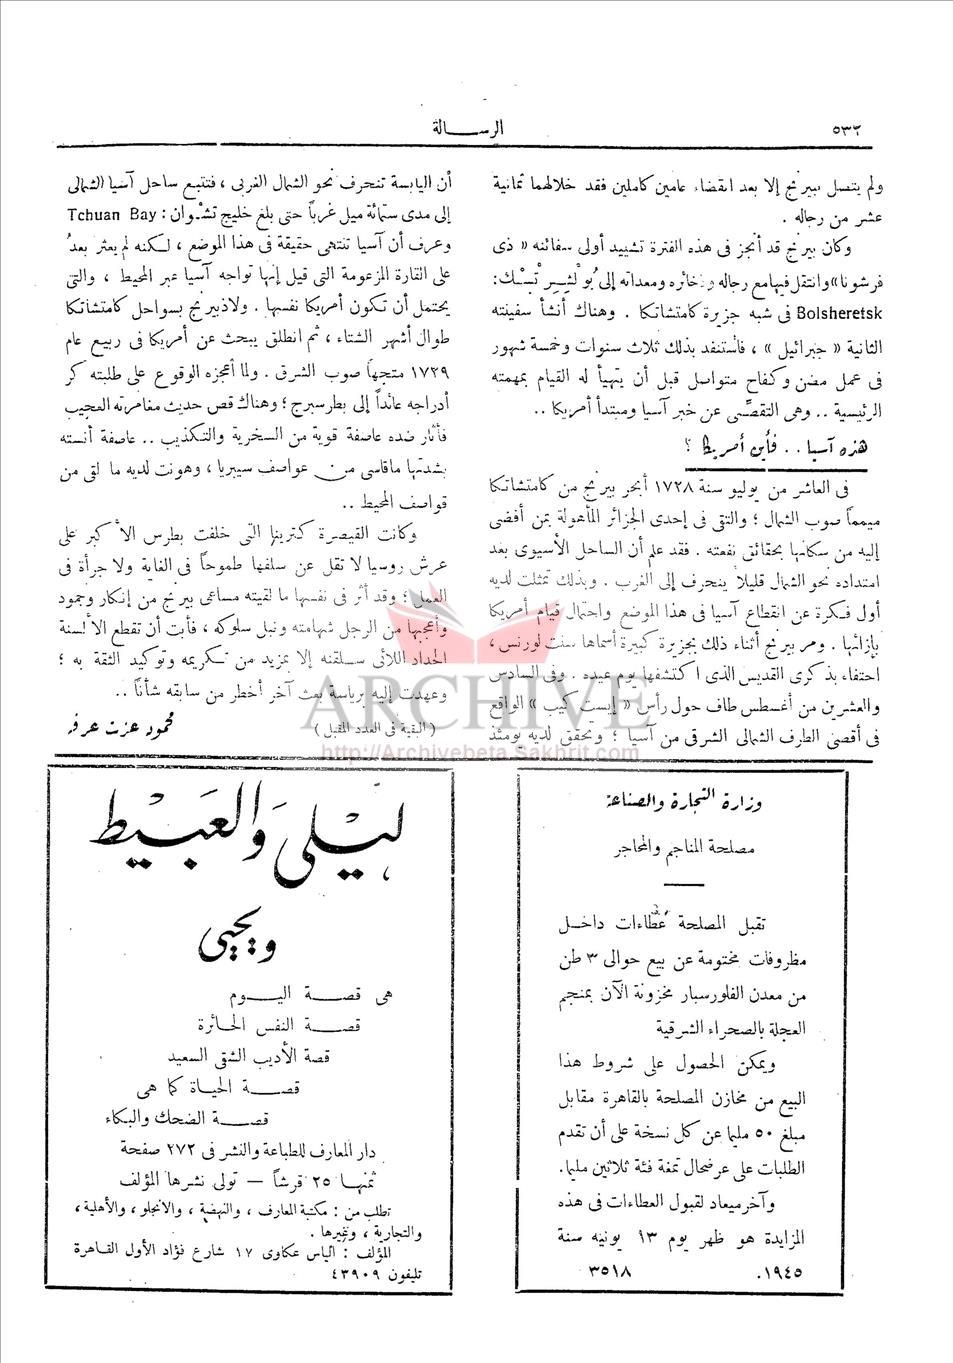 ٥٣٢
الرسالة
ولم يتصل ببيرنج إلا بعد انقضاء عامين كاملين فقد خلالهما ثمانية
عشر من رجاله .
وكان بيرنج قد أنجز فى هذه الفترة تشييد أولى سفائنه « ذى
فرشونا» وانتقل فيها مع رجاله وذخائره ومعداته إلى بُولْشِيرِ تْسْك:
Bolsheretsk فى شبه جزيرة كامتشاتكا . وهناك أنشأ سفينته
الثانية « جبرائيل » ، فاستنفد بذلك ثلاث سنوات وخمسة شهور
فى عمل مضن وكفاح متواصل قبل أن يتهيأ له القيام بمهمته
الرئيسية .. وهى التقصِّى عن خبر آسيا ومبتدأ أمريكا ..
هذه آسيا .. فأين أمريكا ؟
فى العاشر من يوليو سنة ١٧٢٨ أبحر بيرنج من كامتشاتكا
ميمما صوب الشمال ؛ والتقى فى إحدى الجزائر المأهولة بمن أفضى
إليه من سكانها بحقائق نفعته . فقد علم أن الساحل الأسيوى بعد
امتداده نحو الشمال قليلا ينحرف إلى الغرب . وبذلك تمثلت لديه
أول فكرة عن انقطاع آسيا فى هذا الموضع واحتمال قيام أمريكا
بإزائها . ومر بيرنج أثناء ذلك بجزيرة كبيرة أسماها سنت لورنس ،
احتفاء بذكرى القديس الذى اكتشفها يوم عيده . وفى السادس
والعشرين من أغسطس طاف حول رأس « إيست كيب » الواقع
فى أقصى الطرف الشمالى الشرقى من آسيا ؛ وتحقق لديه يومئذ
أن اليابسة تنحرف نحو الشمال الغربى ، فتتبع ساحل آسيا الشمالى
إلى مدى ستمائة ميل غرباً حتى بلغ خليج تشْوان : Tchuan Bay
وعرف أن آسيا تنتهى حقيقة فى هذا الموضع ، لكنه لم يعثر بعدُ
على القارة المزعومة التى قيل إنها تواجه آسيا عبر المحيط ، والتى
يحتمل أن تكون أمريكا نفسها . ولاذ بيرنج بسواحل كامتشاتكا
طوال أشهر الشتاء ، ثم انطلق يبحث عن أمريكا فى ربيع عام
١٧٢٩ متجهاً صوب الشرق . ولما أعجزه الوقوع على طلبته كر
أدراجه عائداً إلى بطرسبرج ؛ وهناك قص حديث مغامرته العجيب
فأثار ضده عاصفة قوية من السخرية والتكذيب .. عاصفة أنسته
بشدتها ماقاسى من عواصف سيبريا ، وهونت لديه ما لقى من
قواصف المحيط ..
وكانت القيصرة كترينا التى خلفت بطرس الأكبر على
عرش روسيا لا تقل عن سلفها طموحاً فى الغاية ولا جرأة فى
العمل ؛ وقد أثر فى نفسها ما لقيته مساعى بيرنج من إنكار وجمود
وأعجبها من الرجل شهامته ونبل سلوكه ، فأبت أن تقطع الألسنة
الحداد اللائى سلقنه إلا بمزيد من تكريمه وتوكيد الثقة به ؛
وعهدت إليه برياسة بعث آخر أخطر من سابقه شأناً ..
( البقية فى العدد المقبل )
محمود عزت عرفة
ARCHIVE
http://Archivebeta.Sakhrit.com
وزارة التجارة والصناعة
مصلحة المناجم والمحاجر
تقبل المصلحة عطاءات داخل
مظروفات مختومة عن بيع حوالى ٣ طن
من معدن الفلورسبار مخزونة الآن بمنجم
العجلة بالصحراء الشرقية
ويمكن الحصول على شروط هذا
البيع من مخازن المصلحة بالقاهرة مقابل
مبلغ ٥٠ مليما عن كل نسخة على أن تقدم
الطلبات على عرضحال تمغة فئة ثلاثين مليما.
وآخر ميعاد لقبول العطاءات فى هذه
المزايدة هو ظهر يوم ١٣ يونيه سنة
١٩٤٥.
٣٥١٨
ليْلى والعَبيْط
ويحيى
هى قصة اليوم
قصة النفس الحائرة
قصة الأديب الشقى السعيد
قصة الحياة كما هى
قصة الضحك والبكاء
دار المعارف للطباعة والنشر فى ٢٧٢ صفحة
ثمنها ٢٥ قرشاً — تولى نشرها المؤلف
تطلب من : مكتبة المعارف ، والنهضة ، والانجلو ، والأهلية ،
والتجارية ، وغيرها .
المؤلف : الياس عكاوى ١٧ شارع فؤاد الأول القاهرة
تليفون ٤٣٩٠٩